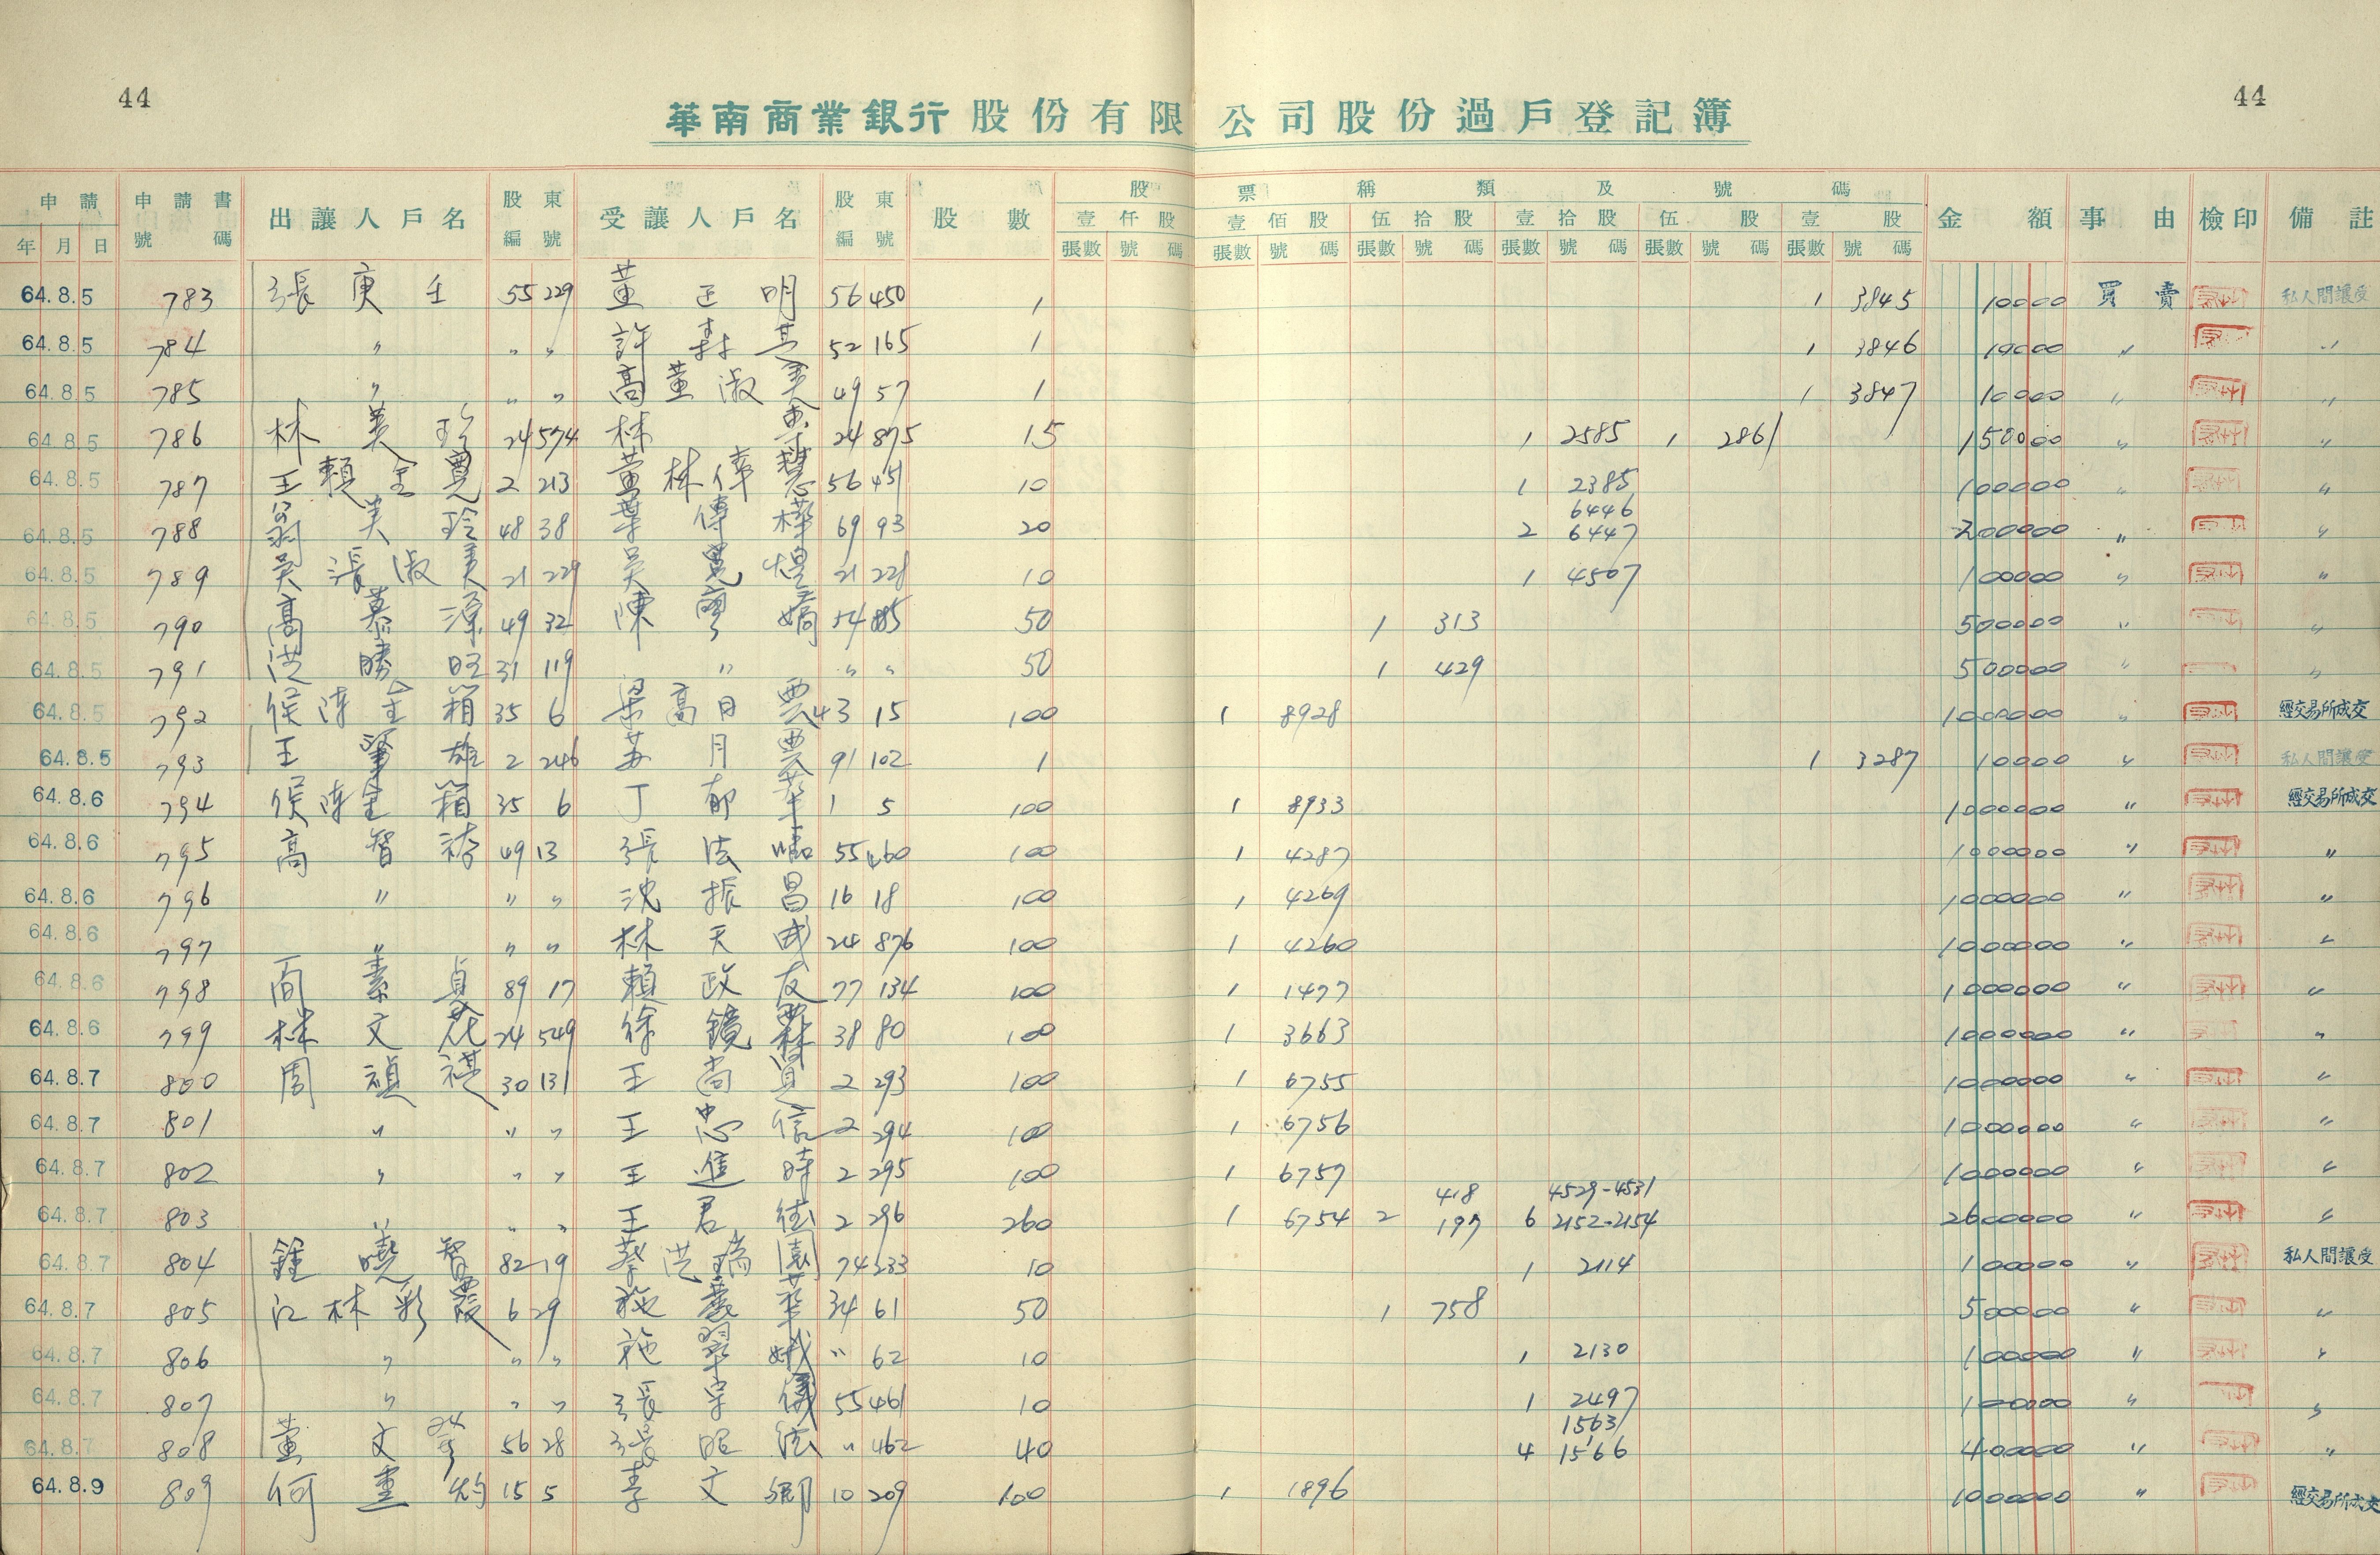 44
44
華南商業銀行股份有限公司股份過戶登記簿
申請 年 月 日 申請書號碼 出讓人戶名 股東編號 受讓人戶名 股東編號 股數 股票稱類及號碼 金額 事由 檢印 備註
壹仟股 壹佰股 伍拾股 壹拾股 伍股 壹股
張數 號碼 張數 號碼 張數 號碼 張數 號碼 張數 號碼 張數 號碼
64.8.5 783 張庚壬 55 229 董正明 56 450 1 1 3845 10000 買賣 私人間讓受
64.8.5 784 〃 〃 〃 許 52 165 1 1 3846 10000 〃 〃
64.8.5 785 〃 〃 〃 高董淑美 49 57 1 1 3847 10000 〃 〃
64.8.5 786 林美玲 24 574 林 24 875 15 1 2585 1 2861 150000 〃 〃
64.8.5 787 王賴金 2 213 董林 慧 56 451 10 1 2385 100000 〃 〃
64.8.5 788 翁美玲 48 38 葉傳樺 69 93 20 2 6446 6447 200000 〃 〃
64.8.5 789 吳張淑美 21 229 吳 煌 21 228 10 1 4507 100000 〃 〃
64.8.5 790 高慕源 49 32 陳廖嬌 54 885 50 1 313 500000 〃 〃
64.8.5 791 洪勝旺 31 119 〃 〃 〃 50 1 429 500000 〃 〃
64.8.5 792 侯陳金箱 35 6 梁高月票 43 15 100 1 8928 1000000 〃 經交易所成交
64.8.5 793 王肇雄 2 246 月 91 102 1 1 3287 10000 〃 私人間讓受
64.8.6 794 侯陳金箱 35 6 丁郁華 1 5 100 1 8933 1000000 〃 經交易所成交
64.8.6 795 高智 49 13 張法 55 460 100 1 4287 1000000 〃 〃
64.8.6 796 〃 〃 〃 沈振昌 16 18 100 1 4269 1000000 〃 〃
64.8.6 797 〃 〃 〃 林天成 24 876 100 1 4260 1000000 〃 〃
64.8.6 798 素貞 89 17 賴政友 77 134 100 1 1477 1000000 〃 〃
64.8.6 799 林文苑 24 549 徐鏡霖 38 80 100 1 3663 1000000 〃 〃
64.8.7 800 周禎祺 30 131 王尚貿 2 293 100 1 6755 1000000 〃 〃
64.8.7 801 〃 〃 〃 王忠信 2 294 100 1 6756 1000000 〃 〃
64.8.7 802 〃 〃 〃 王進時 2 295 100 1 6757 1000000 〃 〃
64.8.7 803 〃 〃 〃 王君 2 296 260 1 6754 2 418 197 6 4529-4531 2152-2154 2600000 〃 〃
64.8.7 804 鍾曉智 82 19 蔡洪瑞園 74 233 10 1 2114 100000 〃 私人間讓受
64.8.7 805 江林彩霞 6 29 施 華 34 61 50 1 758 500000 〃 〃
64.8.7 806 〃 〃 〃 施翠娥 〃 62 10 1 2130 100000 〃 〃
64.8.7 807 〃 〃 〃 張宇儀 55 461 10 1 2497 100000 〃 〃
64.8.7 808 董文 56 28 張昭法 〃 462 40 4 1563 1566 400000 〃 〃
64.8.9 809 何重灼 15 5 李文 10 209 100 1 1896 1000000 〃 經交易所成交